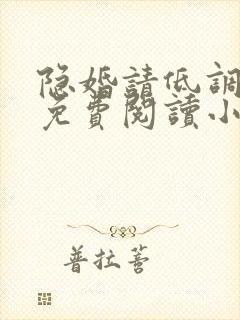 隐婚請低調
免費閱讀小
普拉薈